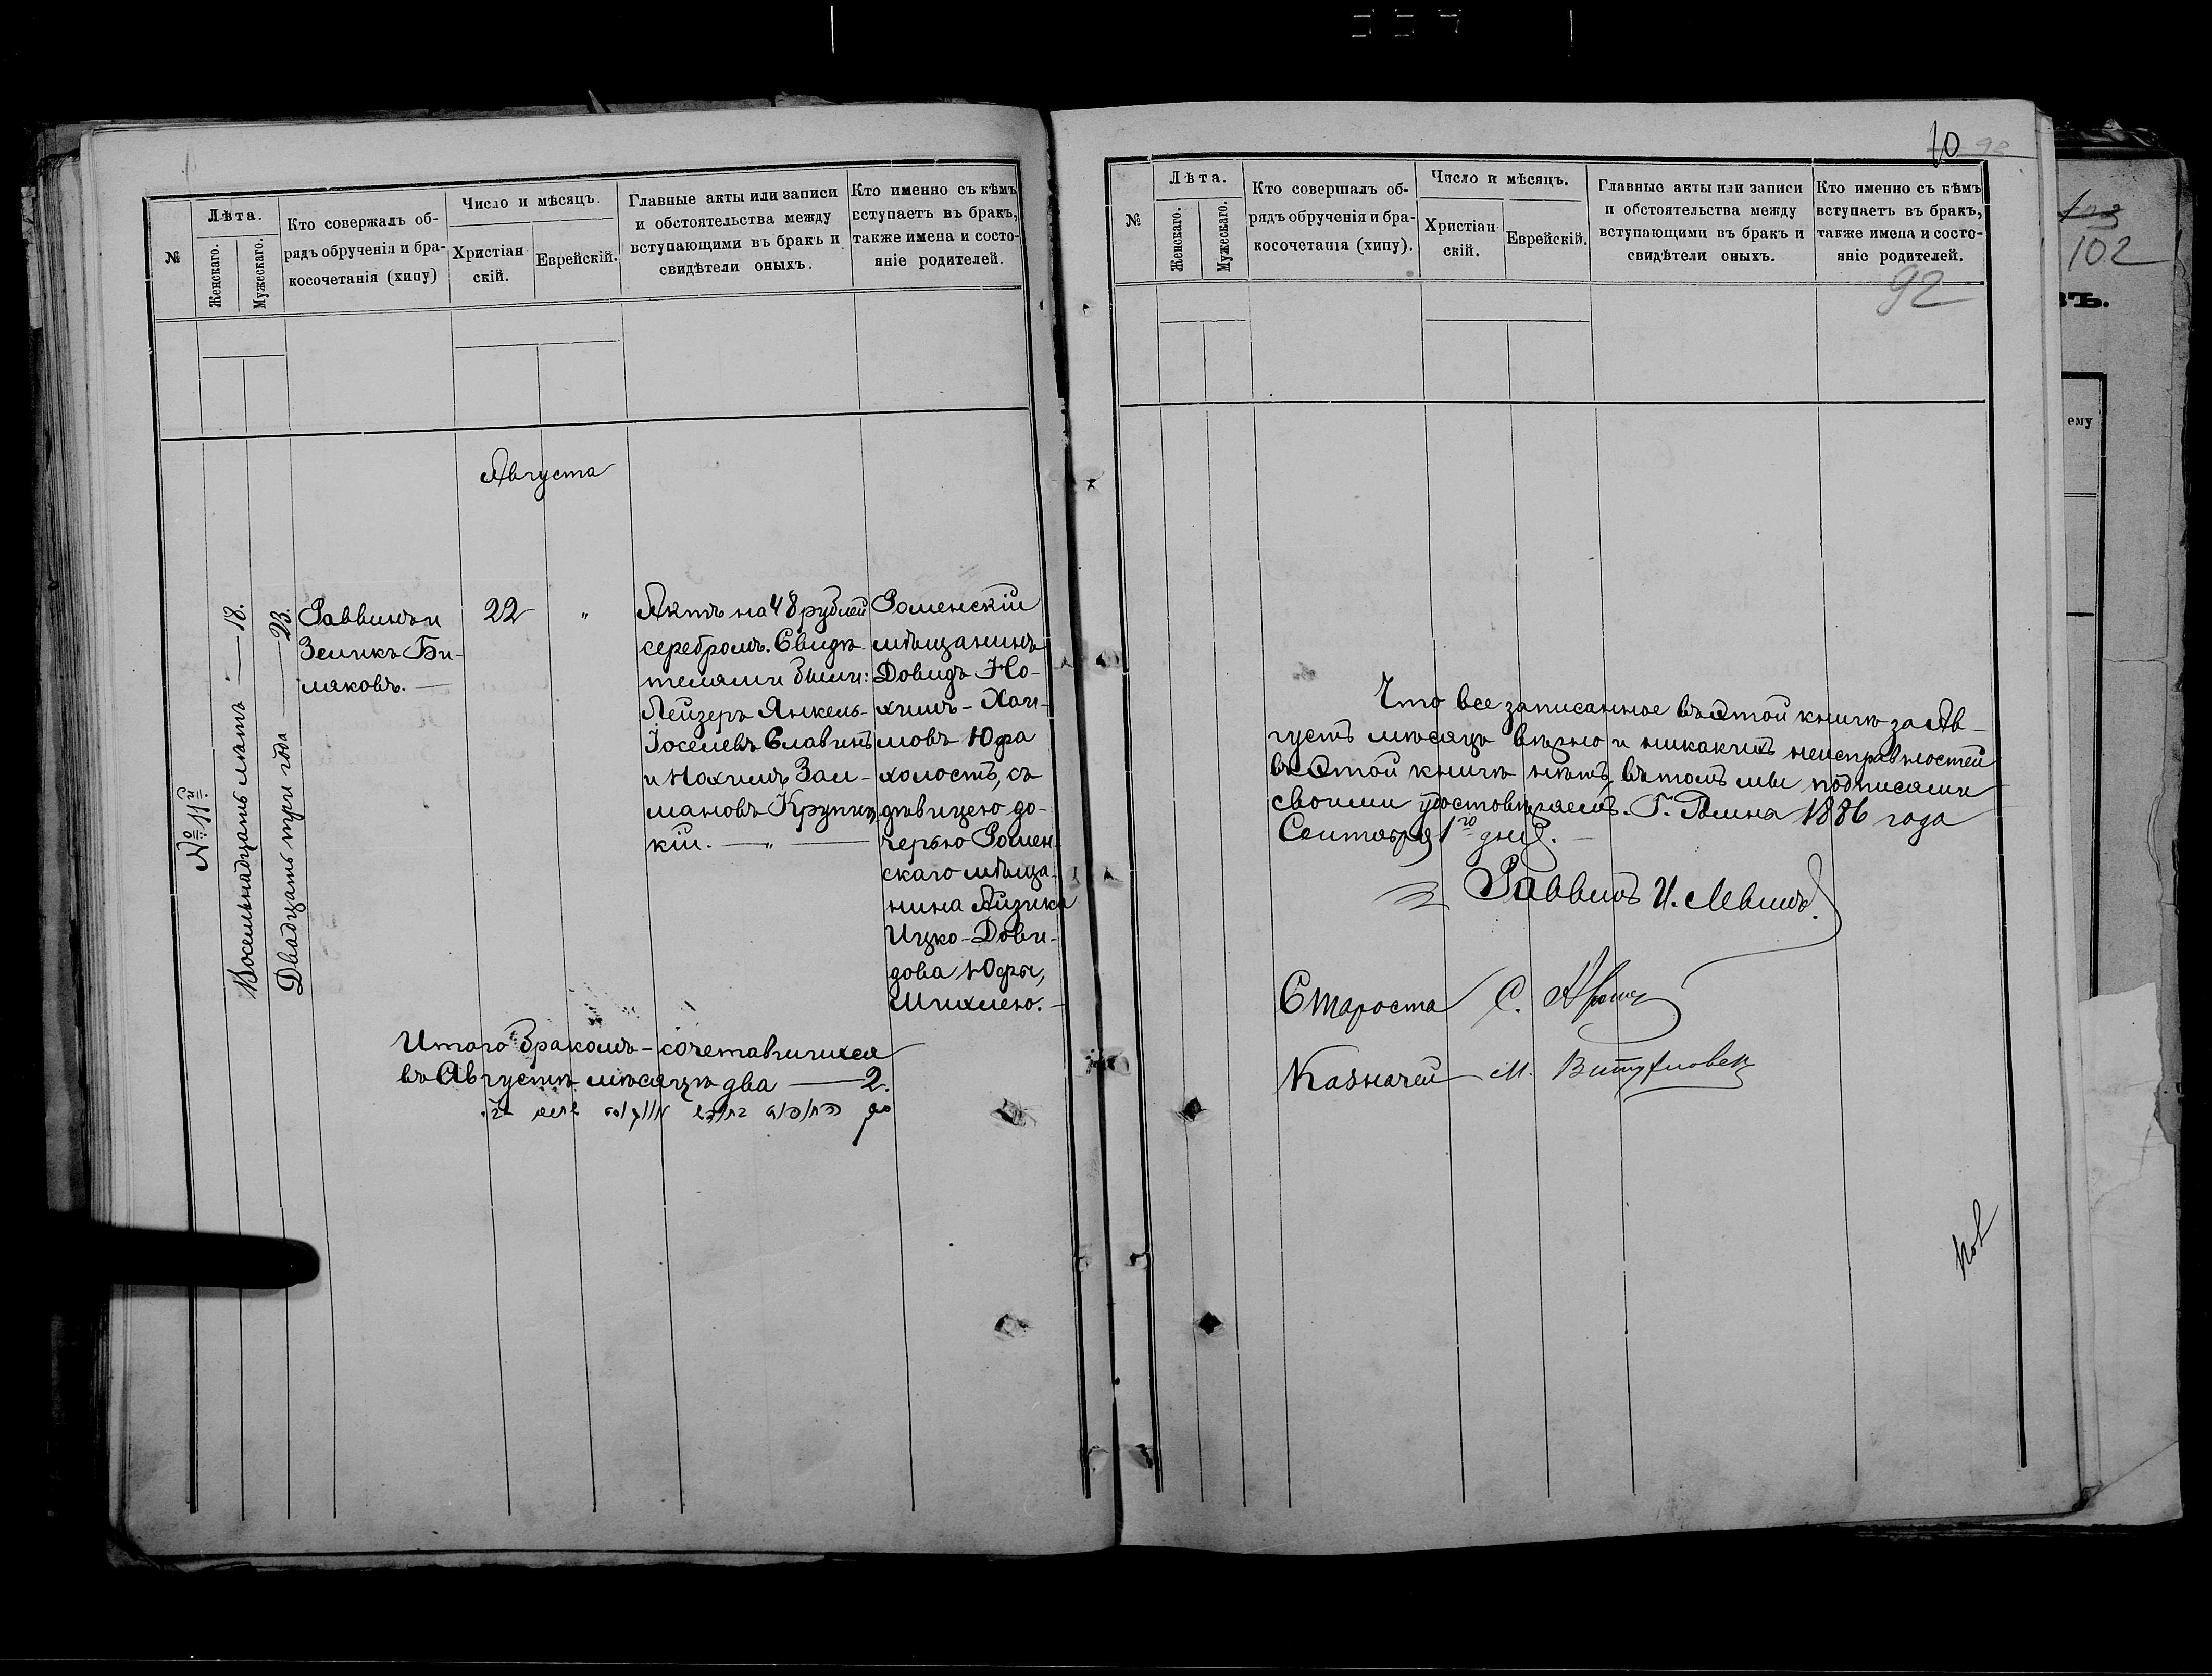 №
Лѣта.
Женскаго.
Мужескаго.
Кто совержалъ об-
рядъ обрученія и бра-
косочетанія (хипу)
Число и мѣсяцъ.
Христіан-
скій.
Еврейскій.
Главные акты или записи
и обстоятельства между
вступающими въ бракъ и
свидѣтели оныхъ.
Кто именно съ кѣмъ
вступаетъ въ бракъ,
также имена и состо-
яніе родителей.
Августа
№ 11й
Восемьнадцать лѣтъ — 18.
Двадцать три года — 23.
Раввинъ и
Зеликъ Би-
ляковъ. —
22
"
Актъ на 48 рублей
серебромъ. Свидѣ-
телями были:
Лейзеръ Янкель-
Іоселевъ Славинъ
и Нохимъ Зал-
мановъ Крупиц-
кій. — " —
Роменскій
мѣщанинъ
Довидъ Но-
химъ-Хаи-
мовъ Юфа
холостъ, съ
дѣвицею до-
черью Ромен-
скаго мѣща-
нина Айзика
Ицко-Дови-
дова Юфы,
Михлею. —
Итого бракомъ-сочетавшихся
въ Августѣ мѣсяцѣ два — 2.
10
98
92
№
Лѣта.
Женскаго.
Мужескаго.
Кто совершалъ об-
рядъ обрученія и бра-
косочетанія (хипу).
Число и мѣсяцъ.
Христіан-
скій.
Еврейскій.
Главные акты или записи
и обстоятельства между
вступающими въ бракъ и
свидѣтели оныхъ.
Кто именно съ кѣмъ
вступаетъ въ бракъ,
также имена и состо-
яніе родителей.
Что все записанное въ этой книгѣ за Ав-
густъ мѣсяцъ вѣрно и никакихъ неисправностей
въ этой книгѣ нѣтъ, въ томъ мы подписями
своими удостовѣряемъ. Г. Ромна 1886 года
Сентября 1го дня. —
Раввинъ И. Левинъ.
Староста С.
Казначей М.
102
въ.
ему